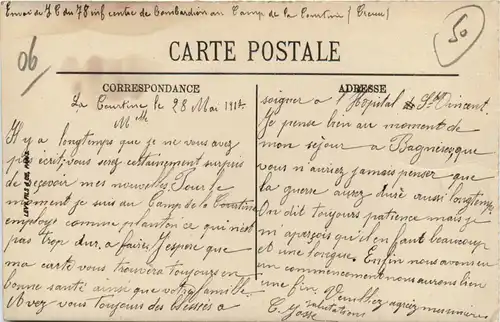 Envoi de J C du 78 inf centre de Bombardier au Camp de la Courtine (Creuse)
06
50
CARTE POSTALE
CORRESPONDANCE
ADRESSE
La Courtine le 28 Mai
Mlle
Il y a longtemps que je ne vous avez
pas écrit, vous serez certainement surpris
de recevoir mes nouvelles. Pour le
moment je suis au Camp de la Courtine
employé comme planton ce qui n'est
pas trop dur, a faire, j'espère que
ma carte vous trouvera toujours en
bonne santé ainsi que votre famille.
Avez vous toujours des blessés a
soigner a l'Hopital St Vincent.
Je pense bien au moment de
mon séjour a que
vous n'auriez jamais penser que
la guerre aurez durée aussi longtemps
On dit toujours patience mais je
m'aperçois qu'il en faut beaucoup
et une longue. Enfin nous avons eu
un commencement nous aurons bien
une fin. Veuillez agréez mes sincères
salutations
C. Josse